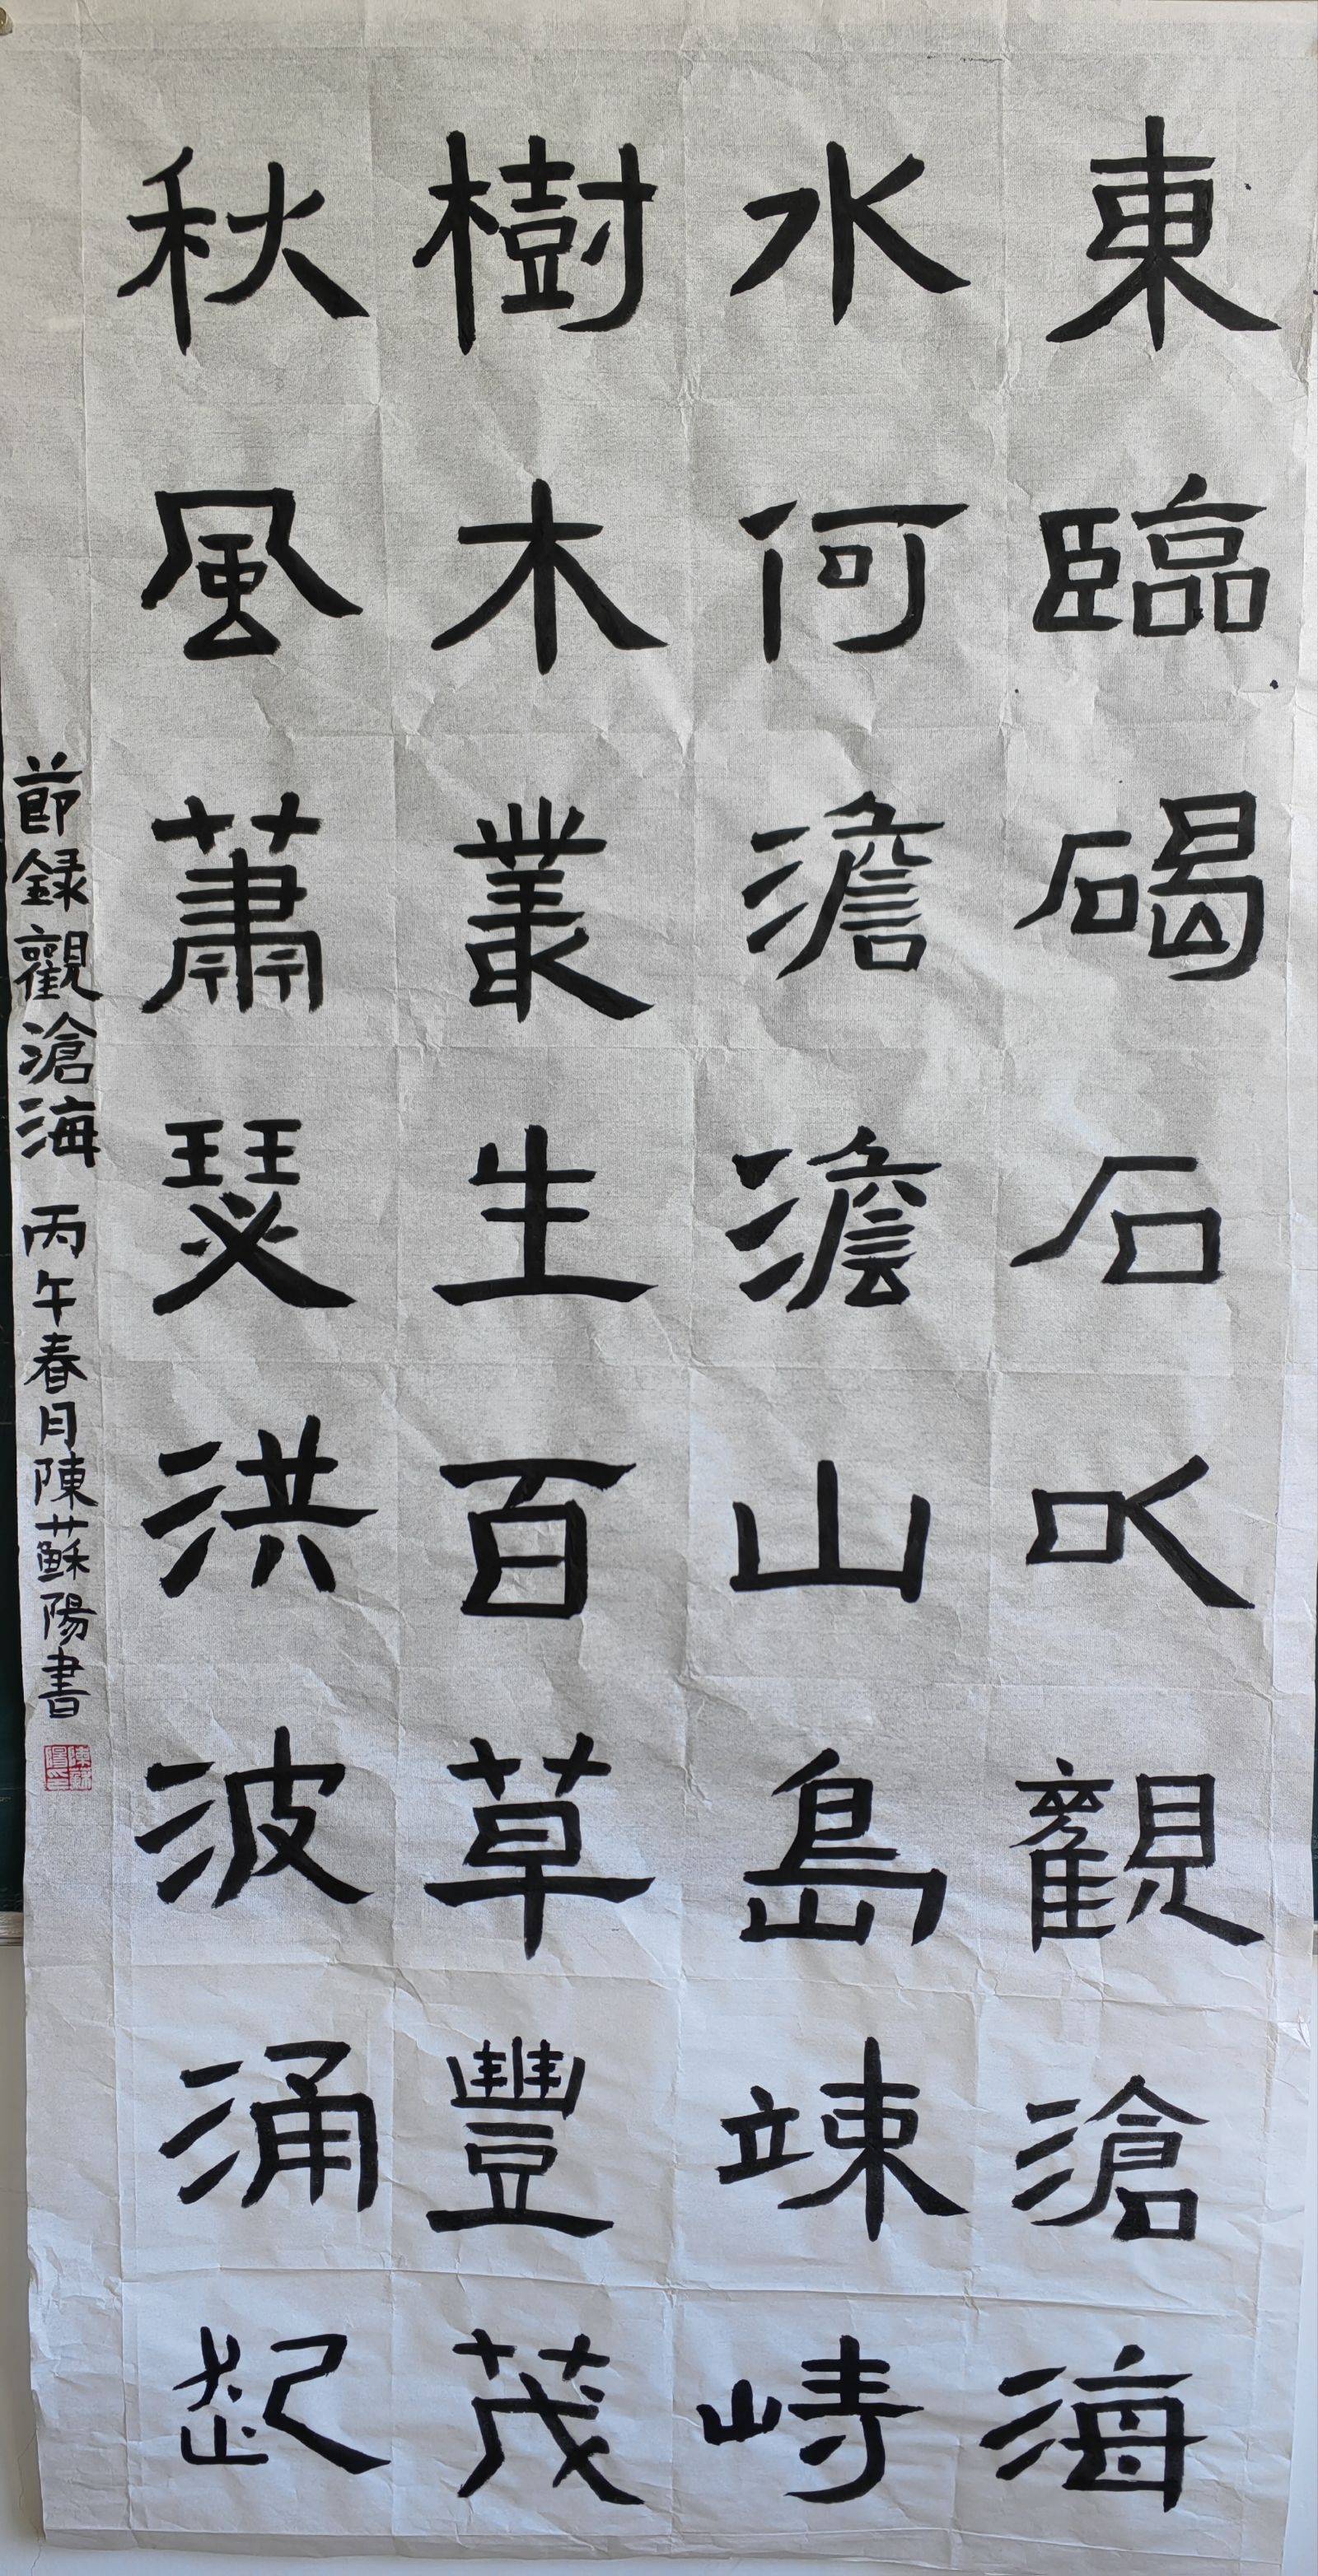 東臨碣石以觀滄海
水何澹澹山島竦峙
樹木叢生百草豐茂
秋風蕭瑟洪波涌起
節録觀滄海 丙午春月陳蘇陽書